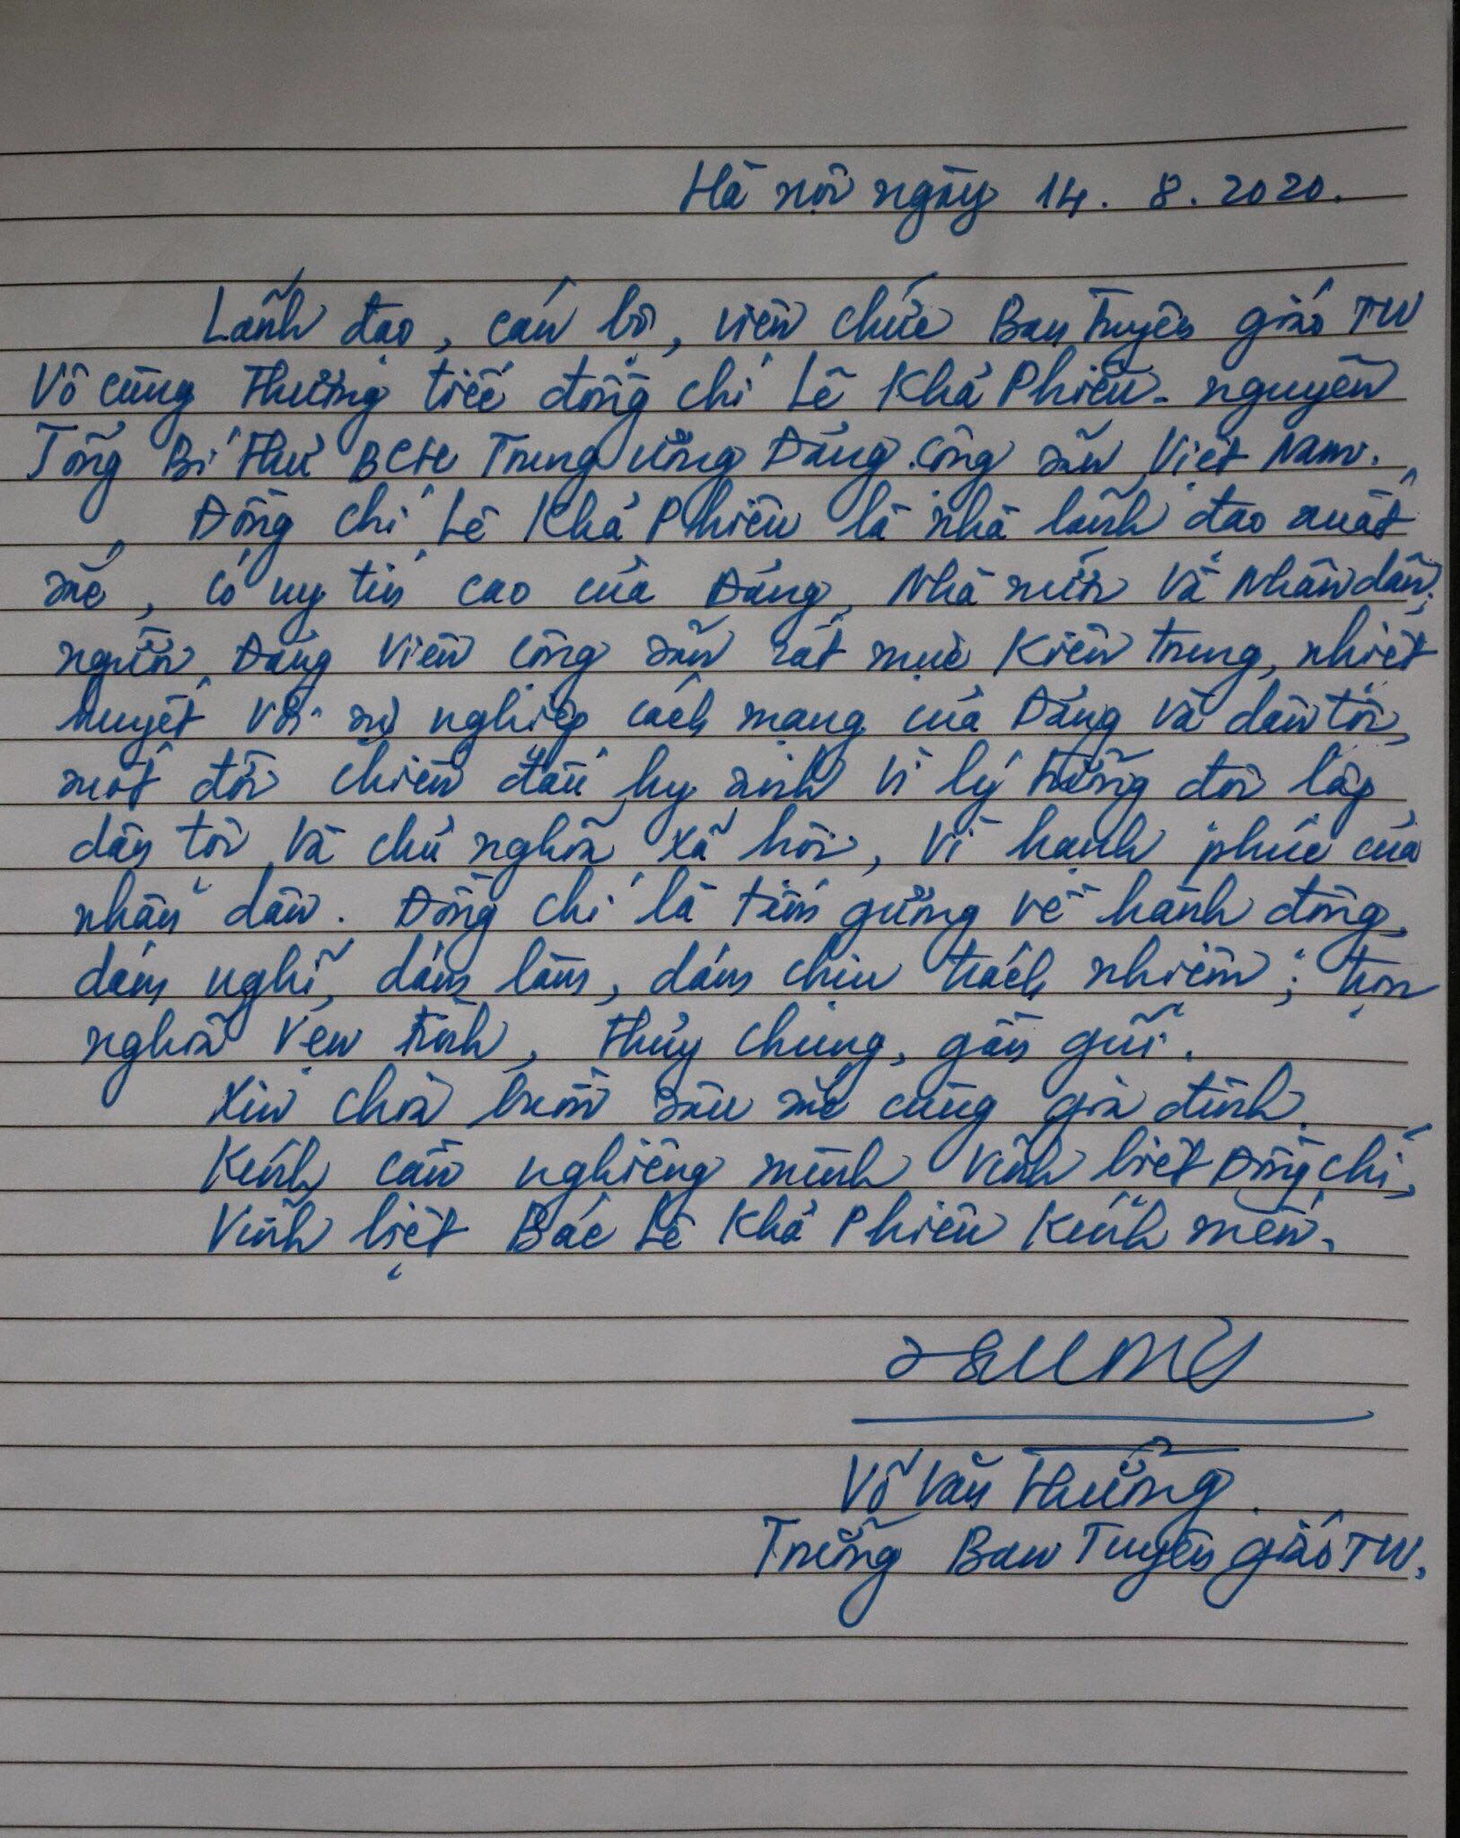 Hà Nội ngày 14. 8. 2020.
Lãnh đạo, cán bộ, viên chức Ban Tuyên giáo TW
Vô cùng thương tiếc đồng chí Lê Khả Phiêu - nguyên
Tổng Bí thư BCH Trung ương Đảng Cộng sản Việt Nam.
Đồng chí Lê Khả Phiêu là nhà lãnh đạo xuất
sắc, có uy tín cao của Đảng, Nhà nước và Nhân dân;
người Đảng viên cộng sản rất mực kiên trung, nhiệt
huyết với sự nghiệp cách mạng của Đảng và dân tộc,
một đời chiến đấu hy sinh vì lý tưởng độc lập
dân tộc và chủ nghĩa xã hội, vì hạnh phúc của
nhân dân. Đồng chí là tấm gương về hành động,
dám nghĩ, dám làm, dám chịu trách nhiệm; trọn
nghĩa vẹn tình, thủy chung, gần gũi.
Xin chia buồn sâu sắc cùng gia đình.
Kính cẩn nghiêng mình vĩnh biệt Đồng chí,
Vĩnh biệt Bác Lê Khả Phiêu kính mến.
Võ Văn Thưởng.
Trưởng Ban Tuyên giáo TW.